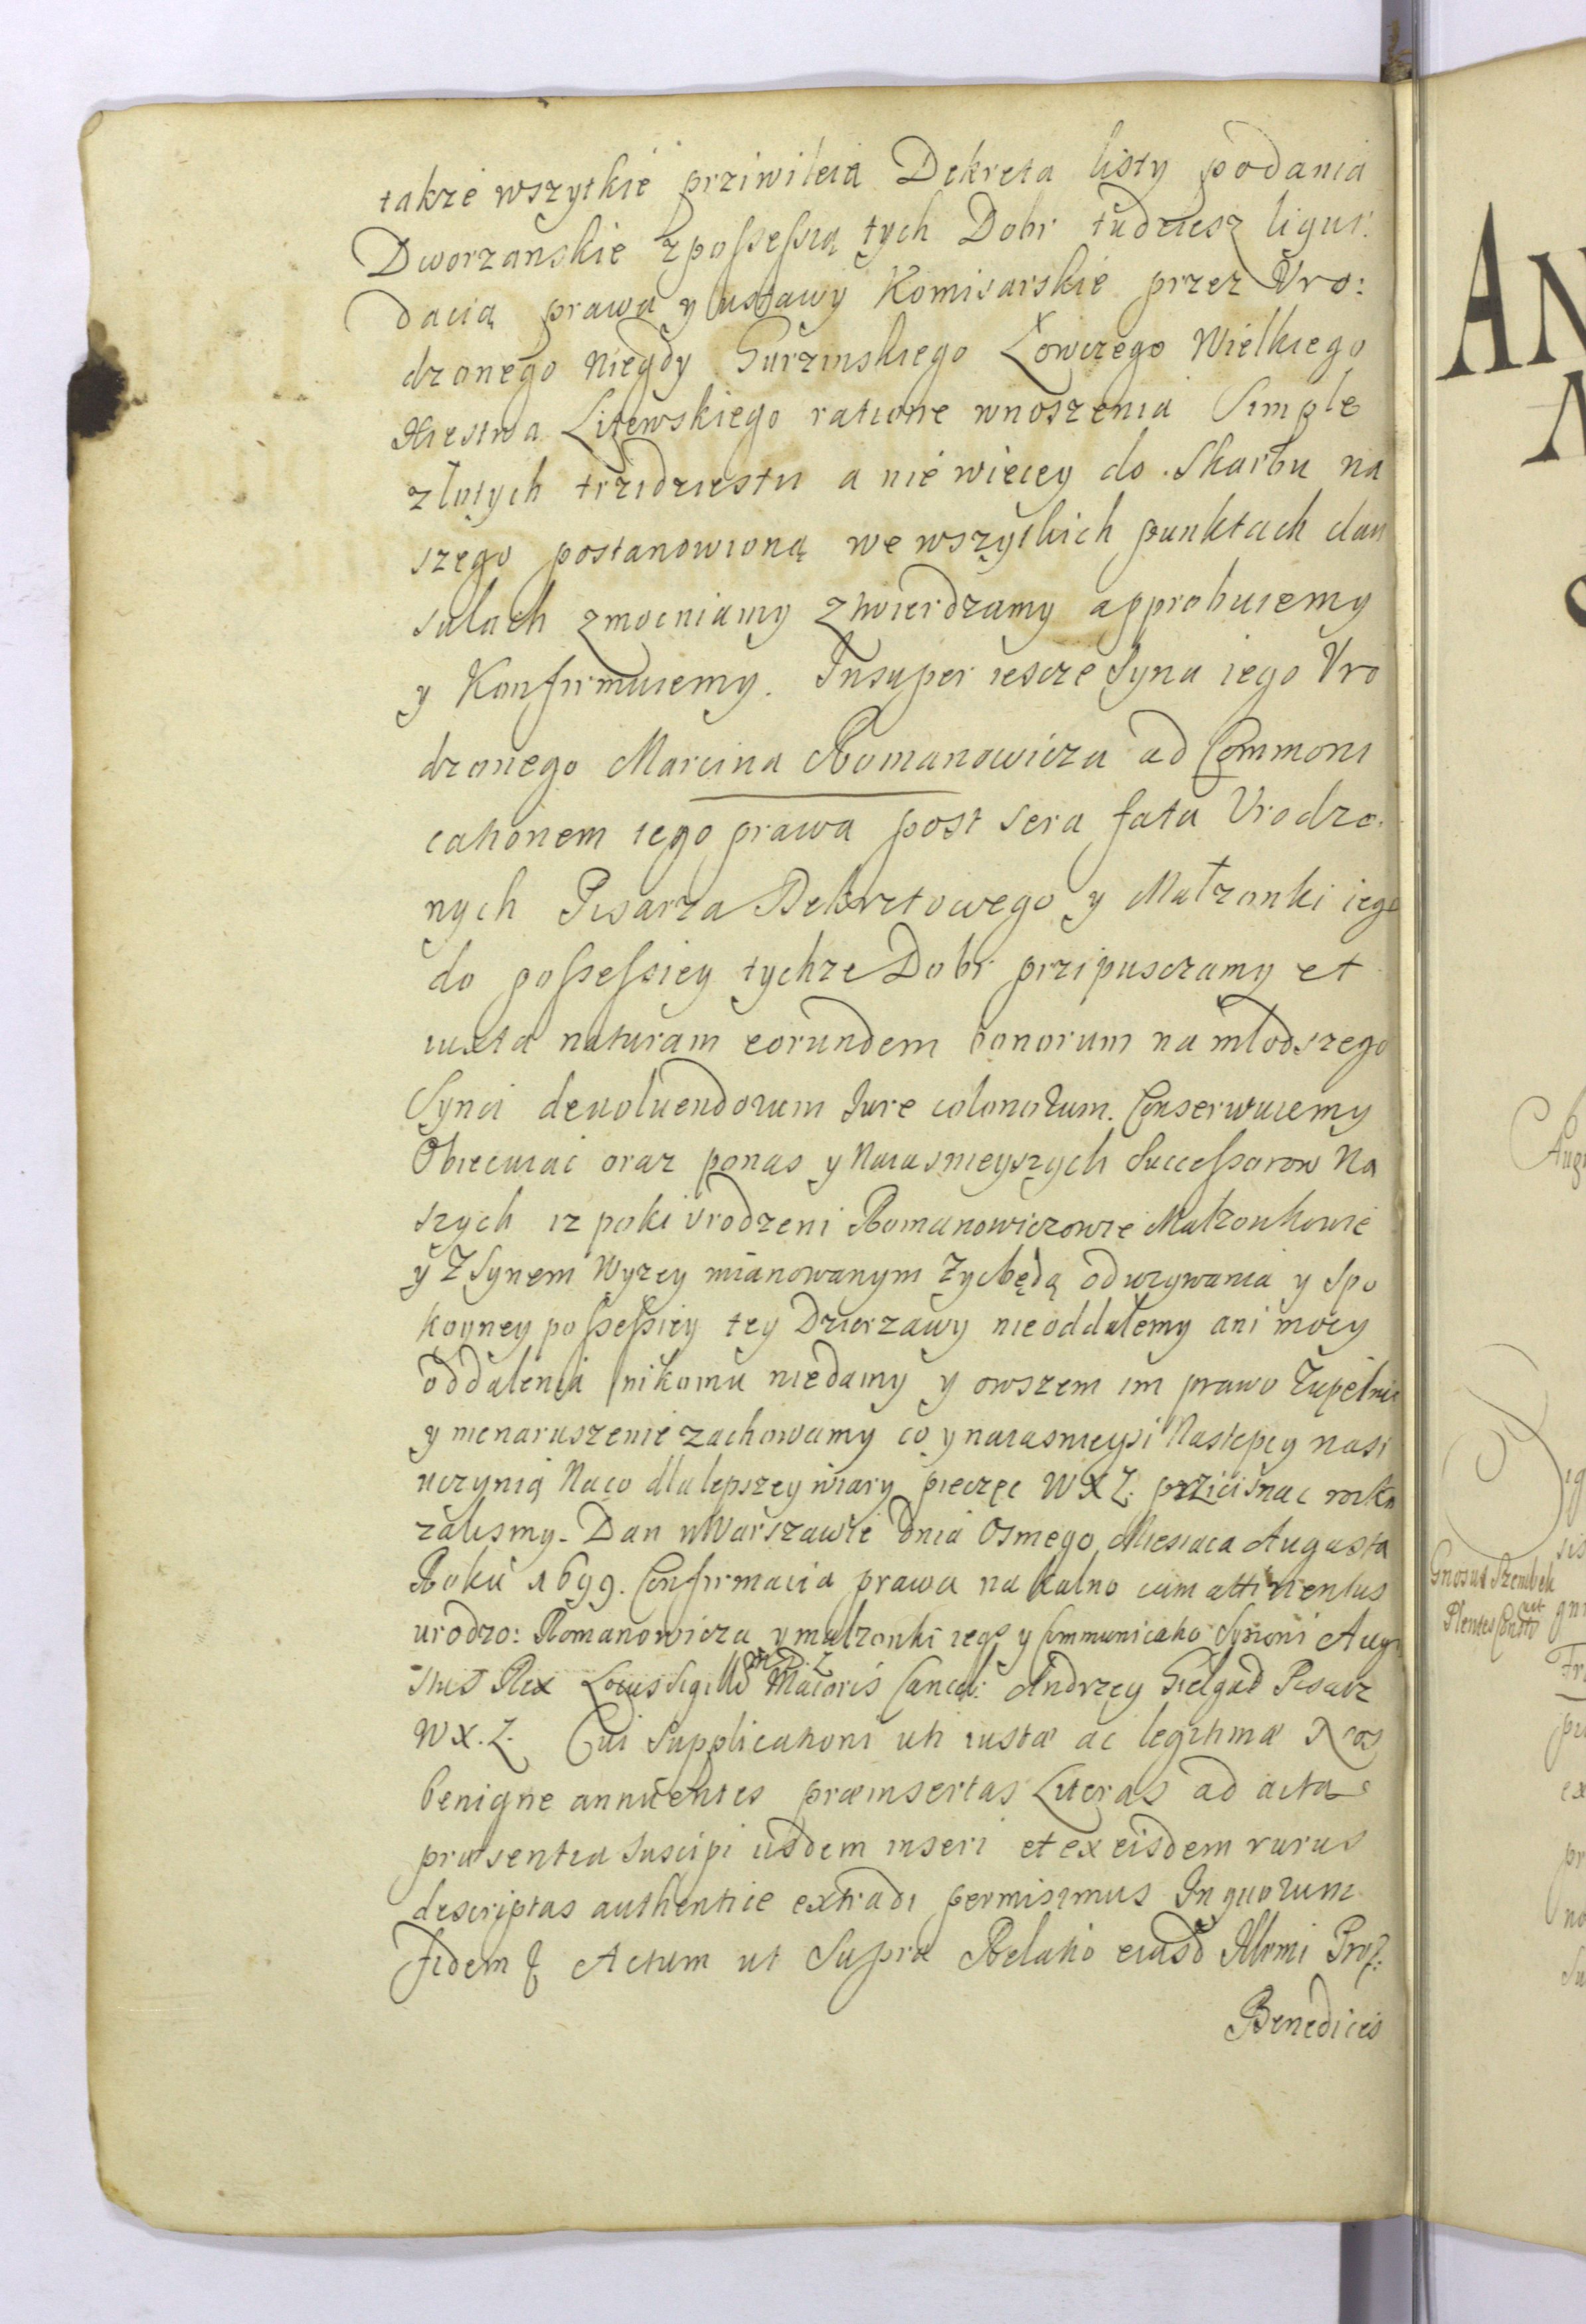 takze wszytkie prziwileia Dekreta listy podania
Dworzanskie z possessią tych Dobr tudziesz liqui:
dacią prawa y ustawy Komisarskie przez Vro:
dzonego niegdy Gurzinskiego Łowczego Wielkiego
Xiestwa Litewskiego ratione wnoszenia Simple
złotych trzidziestu a nie wiecey do Skarbu na
szego postanowioną we wszytkich punktach clau
sulach zmocniamy ztwierdzamy approbuiemy
y Konfirmuiemy. Insuper iescze Syna iego Vro
dzonego Marcina Romanowicza ad Commoni
cationem iego prawa post sera fata Vrodzo:
nych Pisarza Dekretowego y Małzonki iego
do possessiey tychze Dobr przipusczamy et
iuxta naturam eorundem bonorum na młodszego
Syna devoluendorum Iure colonorum. Conserwuiemy
Obiecuiac oraz po nas y Naiasnieyszych Successorow Na
szych iz poki vrodzeni Romanowiczowie Małzonkowie
y Z Synem Wyzey mianowanym Zyc będą od uzywania y Spo
koyney possessiey tey Dzierzawy nie oddalemy ani mocy
oddalenia nikomu niedamy y owszem im prawo Zupełnie
y nienaruszenie zachowamy co y naiasnieysi Nastepcy nasi
uczynią Na co dla lepszey wiary pieczęc W X L. przicisnac roska
zalismy. Dan w Warszawie Dnia Osmego Miesiaca Augusta
Roku 1699. Confirmacia prawa na Kalno cum attinentiis
urodzo: Romanowicza y małzonki iego y Communicatio Synowi Augu
stus Rex Locus Sigilli M. D. L. Maioris Cancel: Andrzey Gielgud Pisarz
W X. L. Cui Supplicationi uti iustæ ac legitimæ Nos
benigne annuentes præinsertas Literas ad acta
præsentia suscipi iisdem inseri et ex eisdem rursus
descriptas authentice extradi permisimus In quorum
fidem Actum ut Supra Relatio eiusd Illrmi Proz:
Benedictis
AN
N
Augu
D
ig
sis
Gnosus Szembek
gni
Fr
pu
ex
pr
no
Su